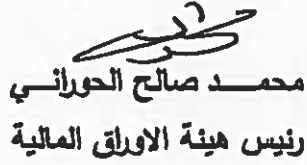 محمـــد صالح الحورانـــي
رئيس هيئة الاوراق المالية